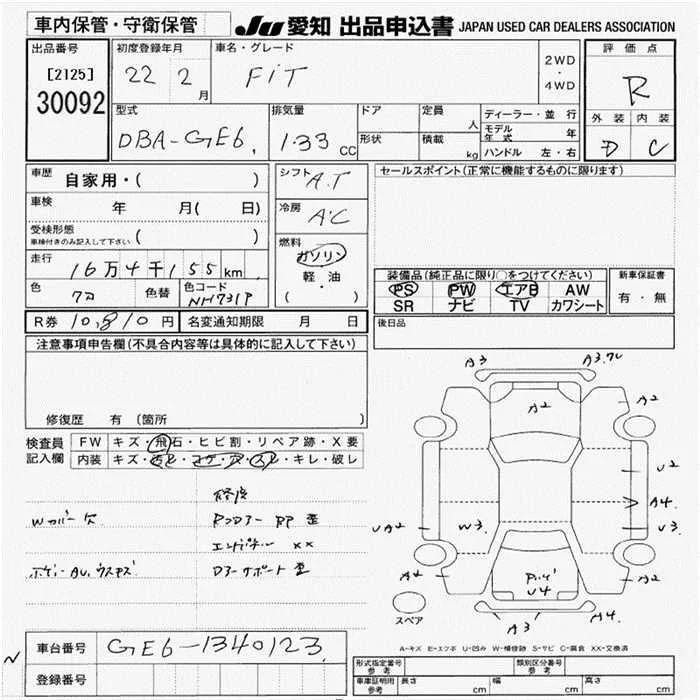 車内保管・守衛保管
JU 愛知 出品申込書 JAPAN USED CAR DEALERS ASSOCIATION
出品番号 初度登録年月 車名・グレード 評価点
[2125] 22 2月 FiT 2WD・4WD R
30092
型式 排気量 ドア 定員 人 ディーラー・並行 外装 内装
DBA-GE6 1.33 CC 形状 積載 kg モデル年式 年 D C
ハンドル 左・右
車歴 自家用・( ) シフト A.T セールスポイント(正常に機能するものに限ります)
車検 年 月( 日) 冷房 A/C
受検形態 車検付きのみ記入して下さい ( ) 燃料 ガソリン
走行 16万4千155km 軽・油 装備品(純正品に限り○をつけてください) 新車保証書
色 クロ 色替 色コード NH731P ( ・ ) PS PW エアB AW 有・無
SR ナビ TV カワシート
R券 10,810円 名変通知期限 月 日 後日品
注意事項申告欄(不具合内容等は具体的に記入して下さい)
修復歴 有 〔箇所 〕
検査員記入欄 FW キズ・飛石・ヒビ割・リペア跡・X要
内装 キズ・汚レ・コゲ・穴・スレ・キレ・破レ
A3 A3.
A2 A2
U2
A4.
UA2 W3. U3
A2 A2
U4
A3 A4.
修復
Wカバー欠 Rフロアー RP 歪
エンドパネル XX
ボディーAU,ウスキズ
スペア
A-キズ E-エクボ U-凹み W-補修跡 S-サビ C-腐食 XX-交換済
N 車台番号 GE6-1340123
登録番号
形式指定番号 参考 類別区分番号 参考
車庫証明用 参考 長さ cm 幅 cm 高さ cm